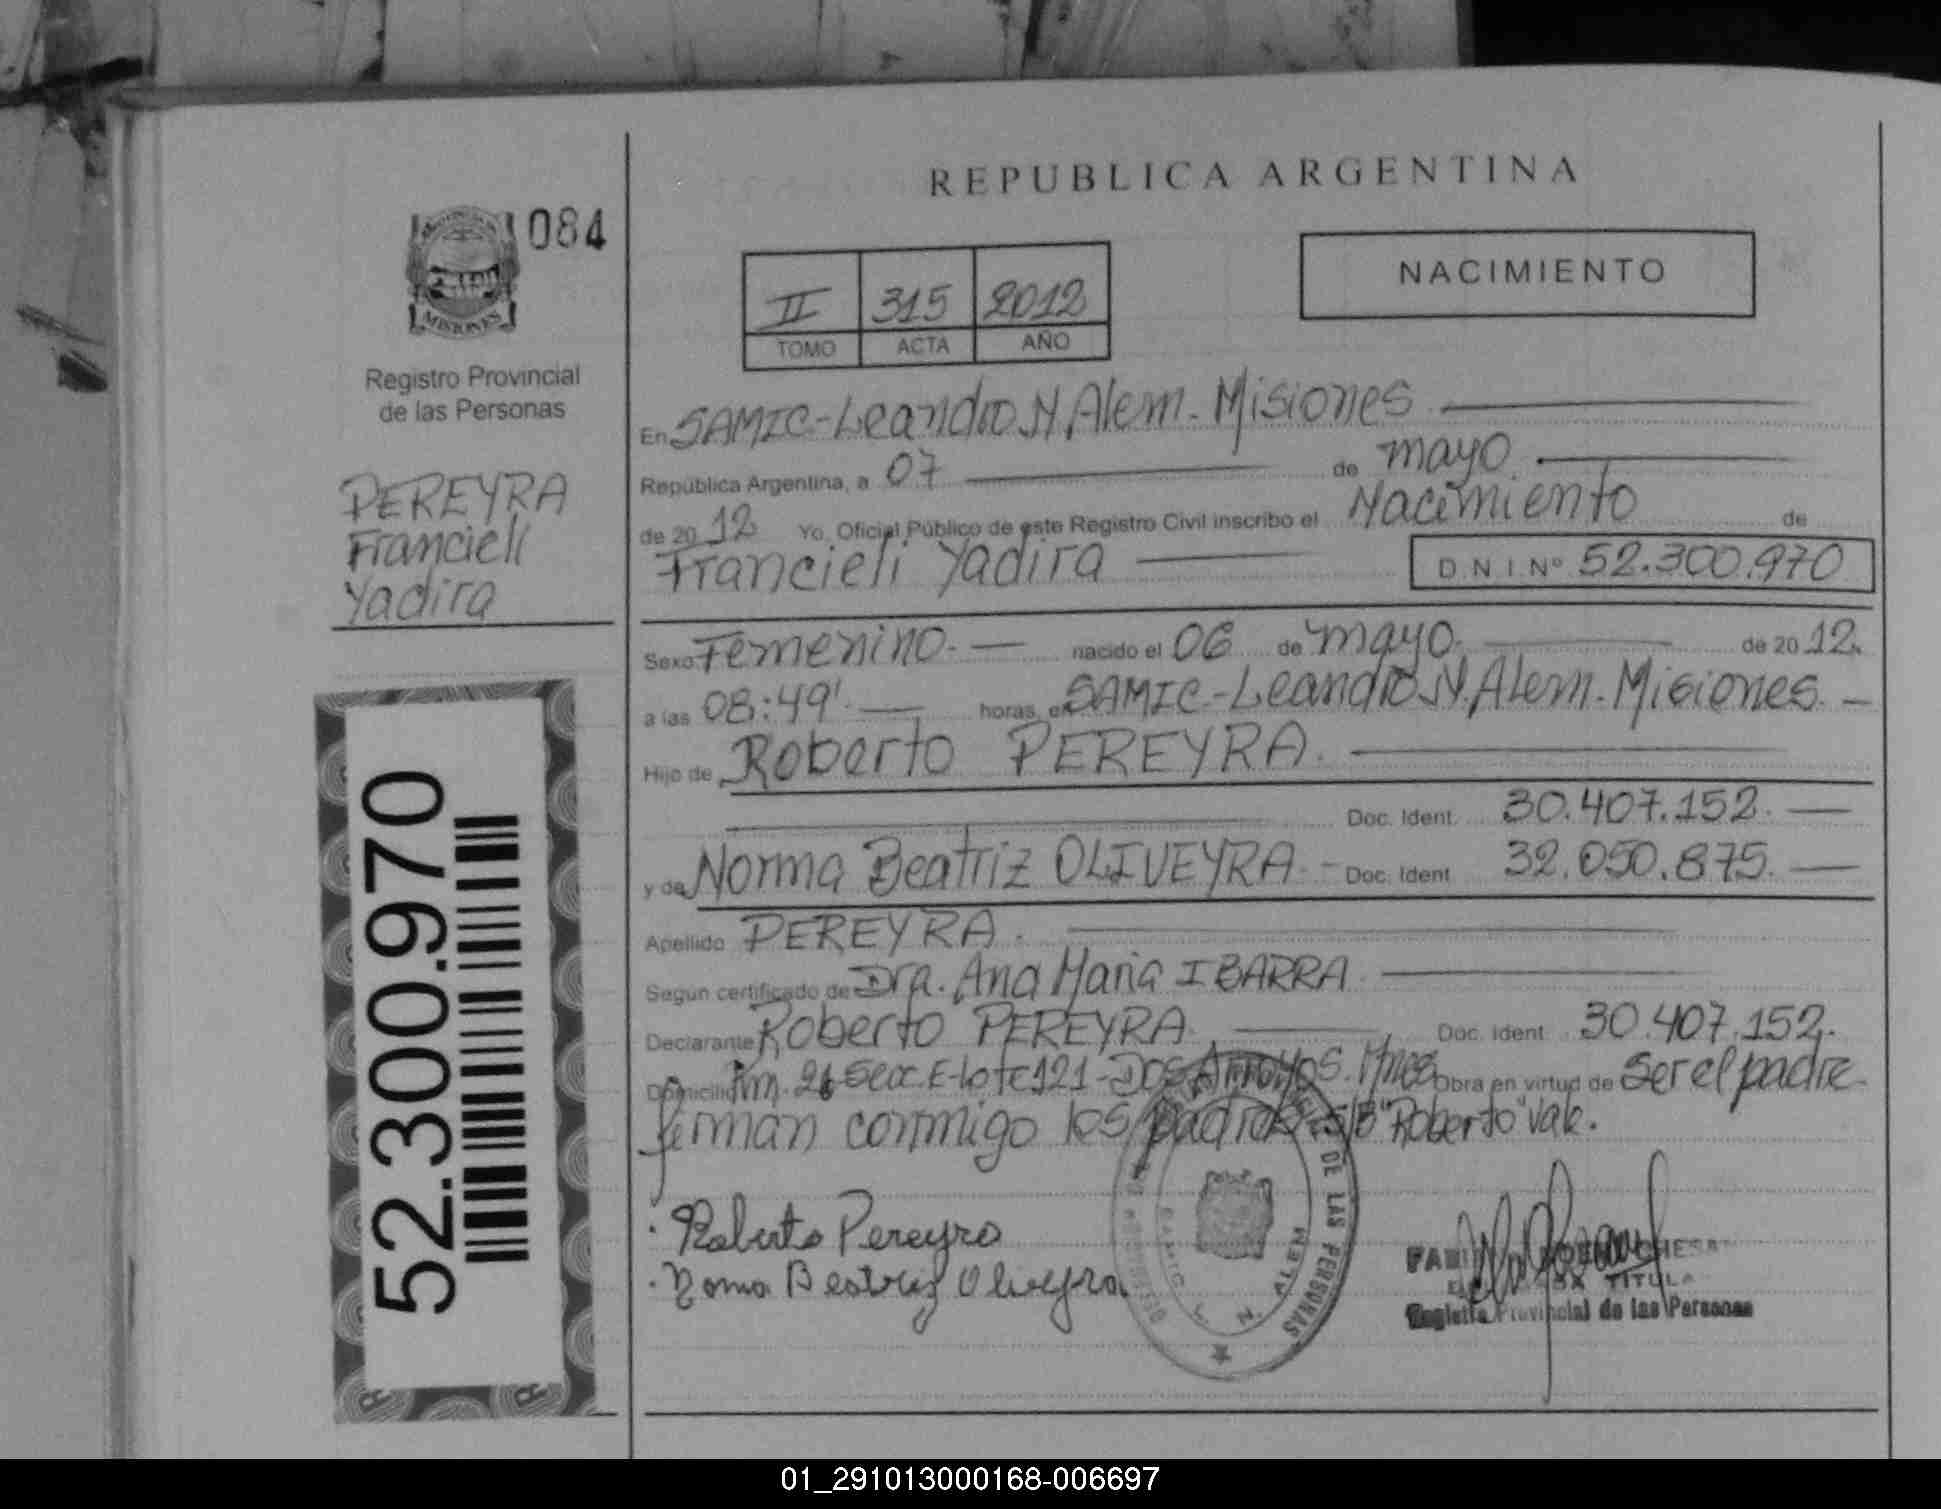 REPUBLICA ARGENTINA
084
MISIONES
Registro Provincial
de las Personas
PEREYRA
Francieli
Yadira
52.300.970
NACIMIENTO
II 315 2012
TOMO ACTA AÑO
En SAMIC-Leandro N. Alem. Misiones
República Argentina, a 07 de mayo
de 2012 Yo, Oficial Público de este Registro Civil inscribo el Nacimiento de
Francieli Yadira D.N.I. Nº 52.300.970
Sexo Femenino. nacido el 06 de mayo. de 2012.
a las 08:49'. horas, en SAMIC-Leandro N. Alem. Misiones.
Hijo de Roberto PEREYRA.
Doc. Ident. 30.407.152.
y de Norma Beatriz OLIVEYRA. Doc. Ident 32.050.875.
Apellido PEREYRA.
Según certificado de Dra. Ana Maria IBARRA
Declarante Roberto PEREYRA. Doc. Ident. 30.407.152.
Domicilio Km. 26-Secc. E-Lote 121-Dos Arroyos. Mnes Obra en virtud de Ser el padre.
firman conmigo los padres. S/B "Roberto" Vale.
Roberto Pereyra
Norma Beatriz Oliveyra
DE LAS PERSONAS
SAMIC L. N. ALEM
TITULA
Registro Provincial de las Personas
01_291013000168-006697